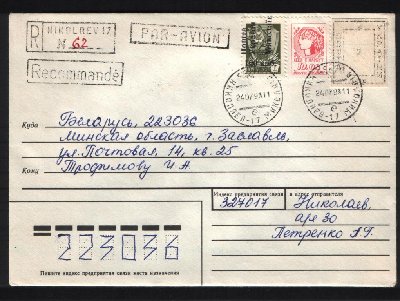 R NIKOLAEV 17
№ 62
PAR-AVION
Recommandé
24 02 93 11
Куда Беларусь, 223036
Минская область, г. Заславль,
ул. Почтовая, 14, кв. 25
Кому Трофимову И. А.
Индекс предприятия связи и адрес отправителя
327017 Николаев,
а/я 30
Петренко А. Г.
223036
Пишите индекс предприятия связи места назначения